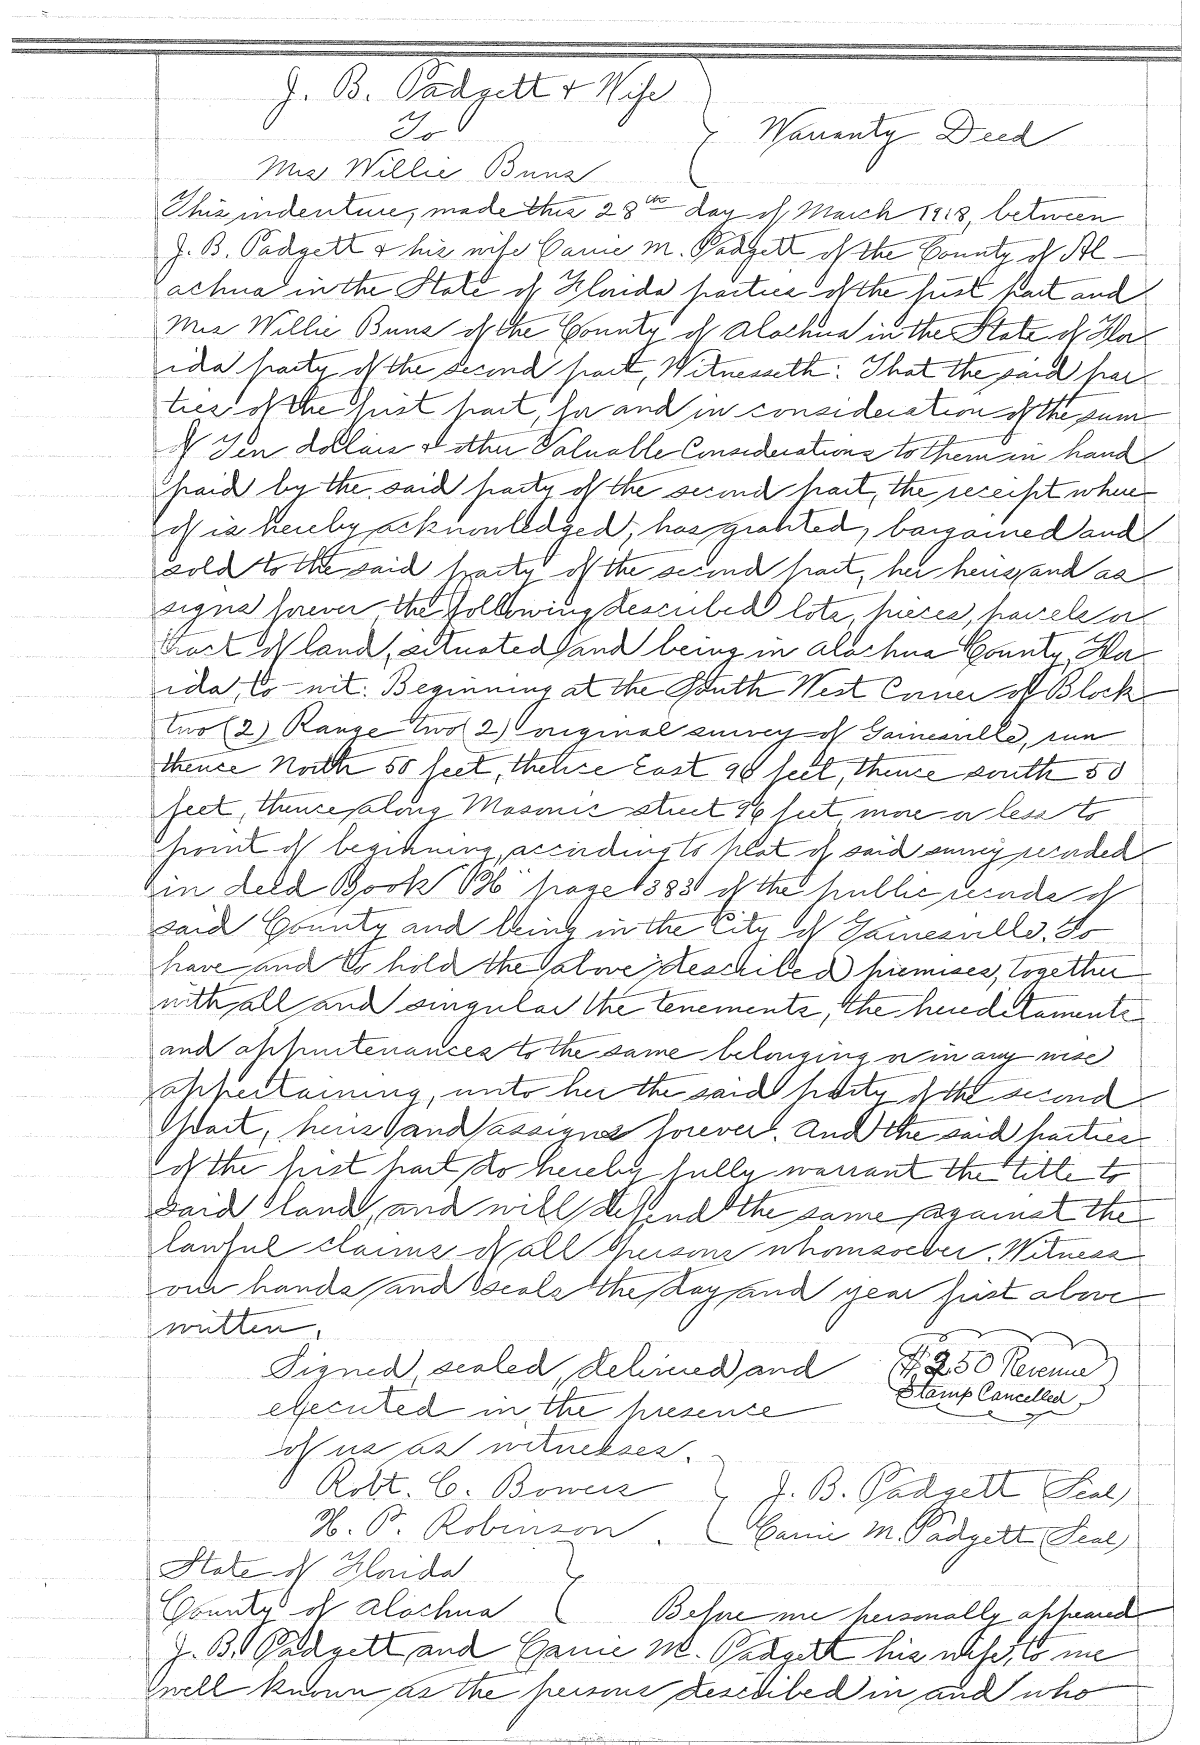 J. B. Padgett & Wife
To
Warranty Deed
Mrs Willie Burns
This indenture, made this 28th day of March 1918, between
J. B. Padgett & his wife Carrie M. Padgett of the County of Al-
achua in the State of Florida parties of the first part and
Mrs Willie Burns of the County of Alachua in the State of Flor
ida party of the second part, Witnesseth: That the said par
ties of the first part, for and in consideration of the sum
of Ten dollars & other Valuable Considerations to them in hand
paid by the said party of the second part, the receipt where
of is hereby acknowledged, has granted, bargained and
sold to the said party of the second part, her heirs and as
signs forever the following described lots, pieces, parcels or
tract of land, situated and being in Alachua County, Flor
ida, to-wit: Beginning at the South West Corner of Block
two (2) Range two (2) original survey of Gainesville, run
thence North 50 feet, thence East 96 feet, thence south 50
feet, thence along Masonic street 96 feet more or less to
point of beginning, according to plat of said survey recorded
in deed Book "H" page 383 of the public records of
said County and being in the City of Gainesville. To
have and to hold the above described premises, together
with all and singular the tenements, the hereditaments
and appurtenances to the same belonging or in any wise
appertaining, unto her the said party of the second
part, heirs and assigns forever. And the said parties
of the first part do hereby fully warrant the title to
said land, and will defend the same against the
lawful claims of all persons whomsoever. Witness
our hands and seals the day and year first above
written.
Signed, sealed, delivered and
$2.50 Revenue
Stamp Cancelled
executed in the presence
of us as witnesses.
Robt. C. Bowers J. B. Padgett (Seal)
H. P. Robinson. Carrie M. Padgett (Seal)
State of Florida
County of Alachua Before me personally appeared
J. B. Padgett and Carrie M. Padgett his wife, to me
well known as the persons described in and who